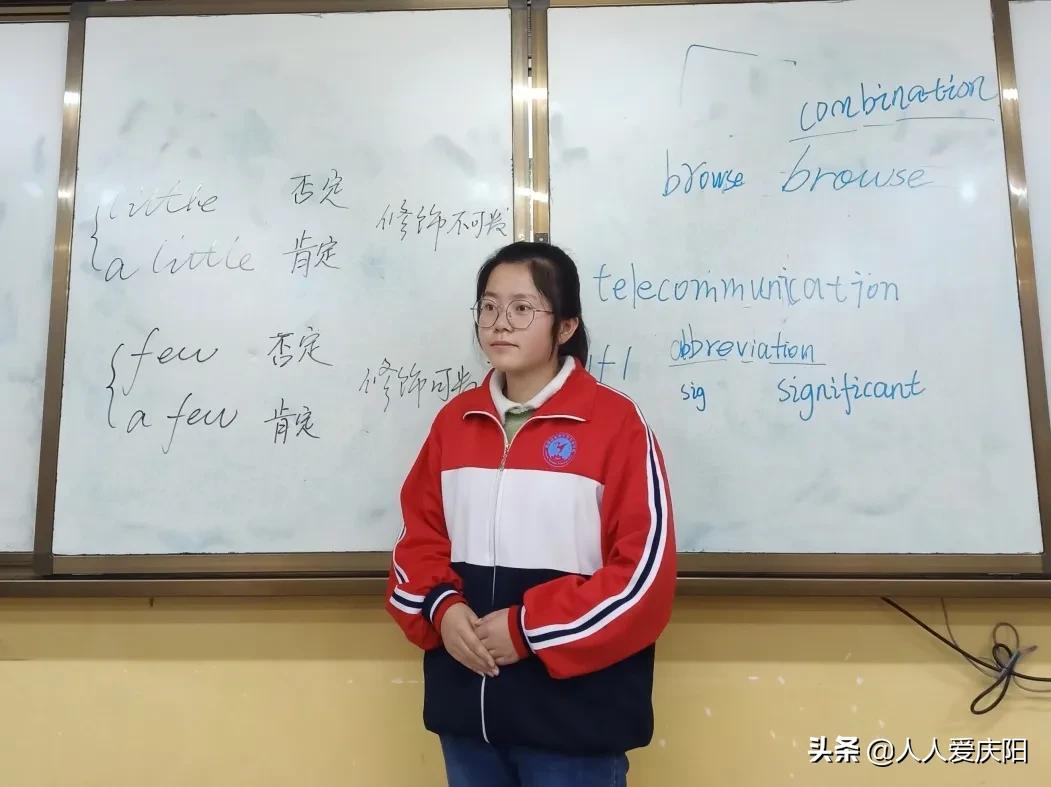 little 否定
修饰不可数
a little 肯定
few 否定
修饰可数
a few 肯定
combination
browse browse
telecommunication
abbreviation
sig significant
头条 @人人爱庆阳